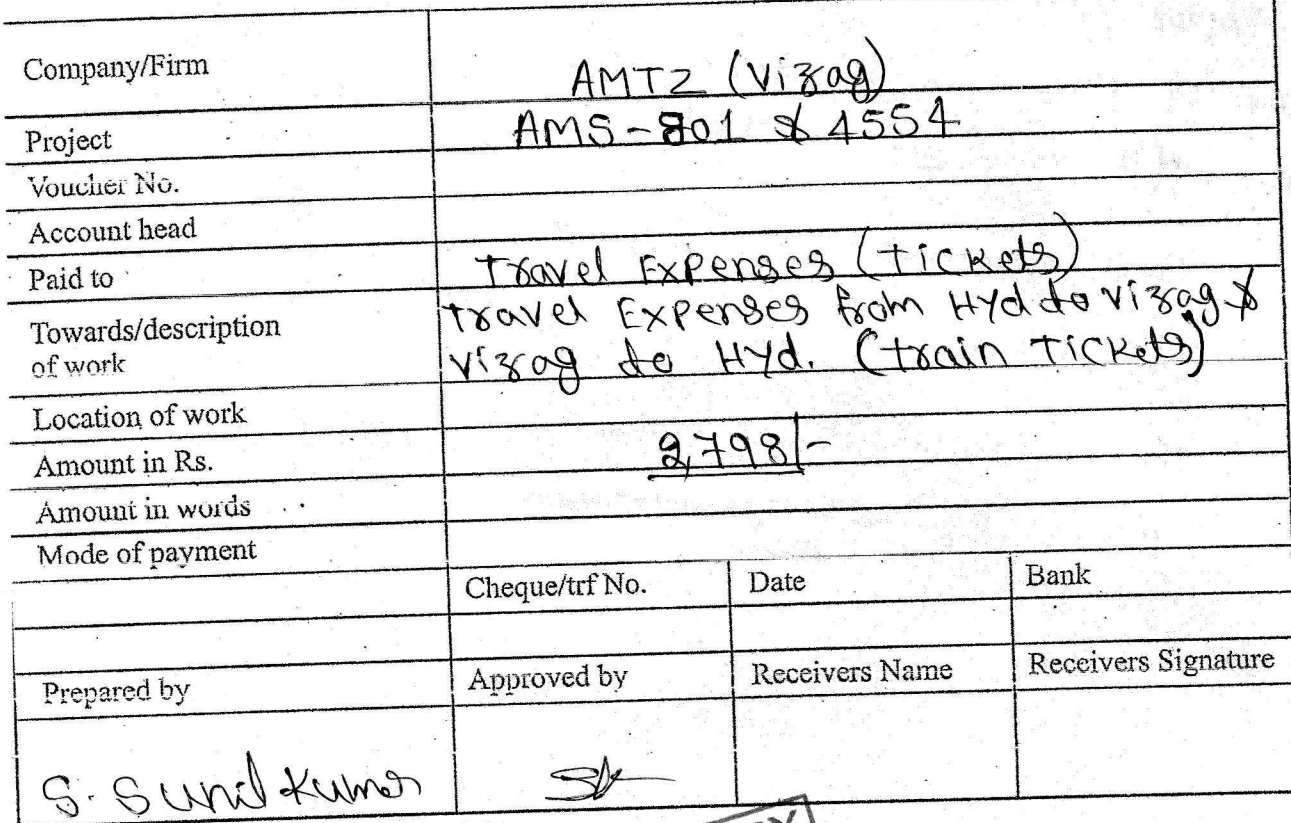 Company/Firm AMTZ (Vizag)
Project AMS-801 & 4554
Voucher No.
Account head
Paid to Travel Expenses (Tickets)
Towards/description Travel Expenses from Hyd to vizag &
of work vizag to Hyd. (train Tickets)
Location of work
Amount in Rs. 2,798/-
Amount in words
Mode of payment
Cheque/trf No. Date Bank
Prepared by Approved by Receivers Name Receivers Signature
S. Sunil Kumar